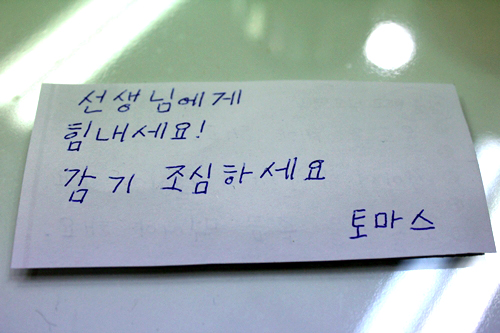 선생님에게
힘내세요!
감기 조심하세요
토마스